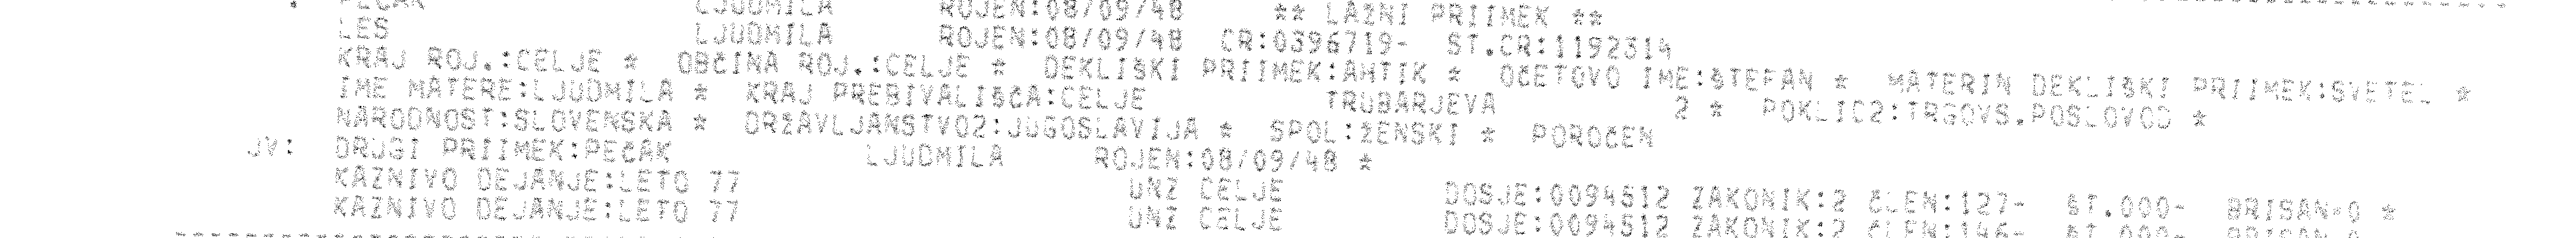 PEČAK LJUDMILA ROJEN:08/09/48 ** LAŽNI PRIIMEK **
LES LJUDMILA ROJEN:08/09/48 CR:0396719- ST.CR:1192314
KRAJ ROJ.:CELJE * OBČINA ROJ.:CELJE * DEKLIŠKI PRIIMEK:AHTIK * OČETOVO IME:ŠTEFAN * MATERIN DEKLIŠKI PRIIMEK:SVETEL *
IME MATERE:LJUDMILA * KRAJ PREBIVALIŠČA:CELJE TRUBARJEVA 2 * POKLIC2:TRGOVS.POSLOVOD *
NARODNOST:SLOVENSKA * DRŽAVLJANSTVO2:JUGOSLAVIJA * SPOL:ŽENSKI * POROČEN
JV: DRUGI PRIIMEK:PEČAK LJUDMILA ROJEN:08/09/48 *
KAZNIVO DEJANJE:LETO 77 UNZ CELJE DOSJE:0094512 ZAKONIK:2 ČLEN:127- ŠT.000- BRISAN=0 *
KAZNIVO DEJANJE:LETO 77 UNZ CELJE DOSJE:0094512 ZAKONIK:2 ČLEN:146- ŠT.000- BRISAN=0